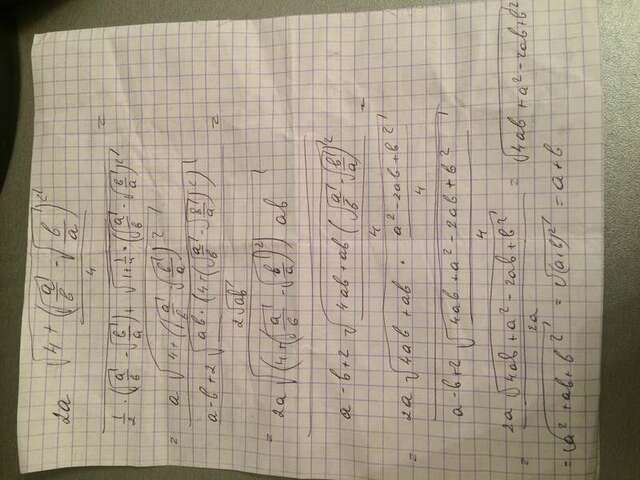 2a √(4 + (√(a/b) - √(b/a))²)
4
1/2 · (√(a/b) - √(b/a)) + √(1 + 1/4 · (√(a/b) - √(b/a))²) =
= a √(4 + (√(a/b) - √(b/a))²)
a - b + 2 √(ab · (4 + (√(a/b) - √(b/a))²)) =
2√ab
= 2a √((4 + (√(a/b) - √(b/a))²) ab)
a - b + 2 √(4ab + ab (√(a/b) - √(b/a))²) =
4
= 2a √(4ab + ab · a² - 2ab + b²)
4
a - b + 2 √(4ab + a² - 2ab + b²)
4
= 2a √(4ab + a² - 2ab + b²) = √(4ab + a² - 2ab + b²)
2a
= √(a² + ab + b²) = √(a+b)² = a + b